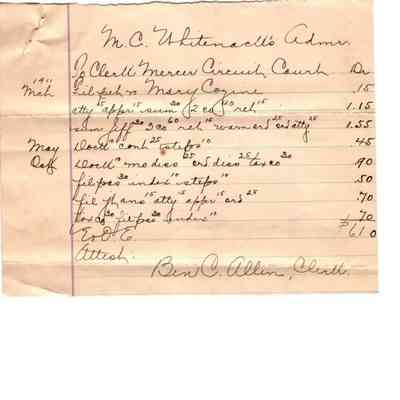 M.C. Whitenack's Admr.
To Clerk Mercer Circuit Court Dr
1911
Mch fil peh vs Mary Cozine .15
atty 15 appr 15 sum 30 2 co 40 reh 15 1.15
sum jeff 30 2 co 60 reh 15 warn ord 25 ord atty 25 1.55
May Dock 10 cont 25 steps 10 .45
Oct Dock 10 mo disc 25 ord disc 25 tax co 30 .90
fil pos 30 index 10 steps 10 .50
fil ans 15 atty 15 appr 15 ord 25 .70
tax co 30 fil pos 30 index 10 .70
E.O.E. $6.10
Attest.
Ben C. Allin, Clerk.